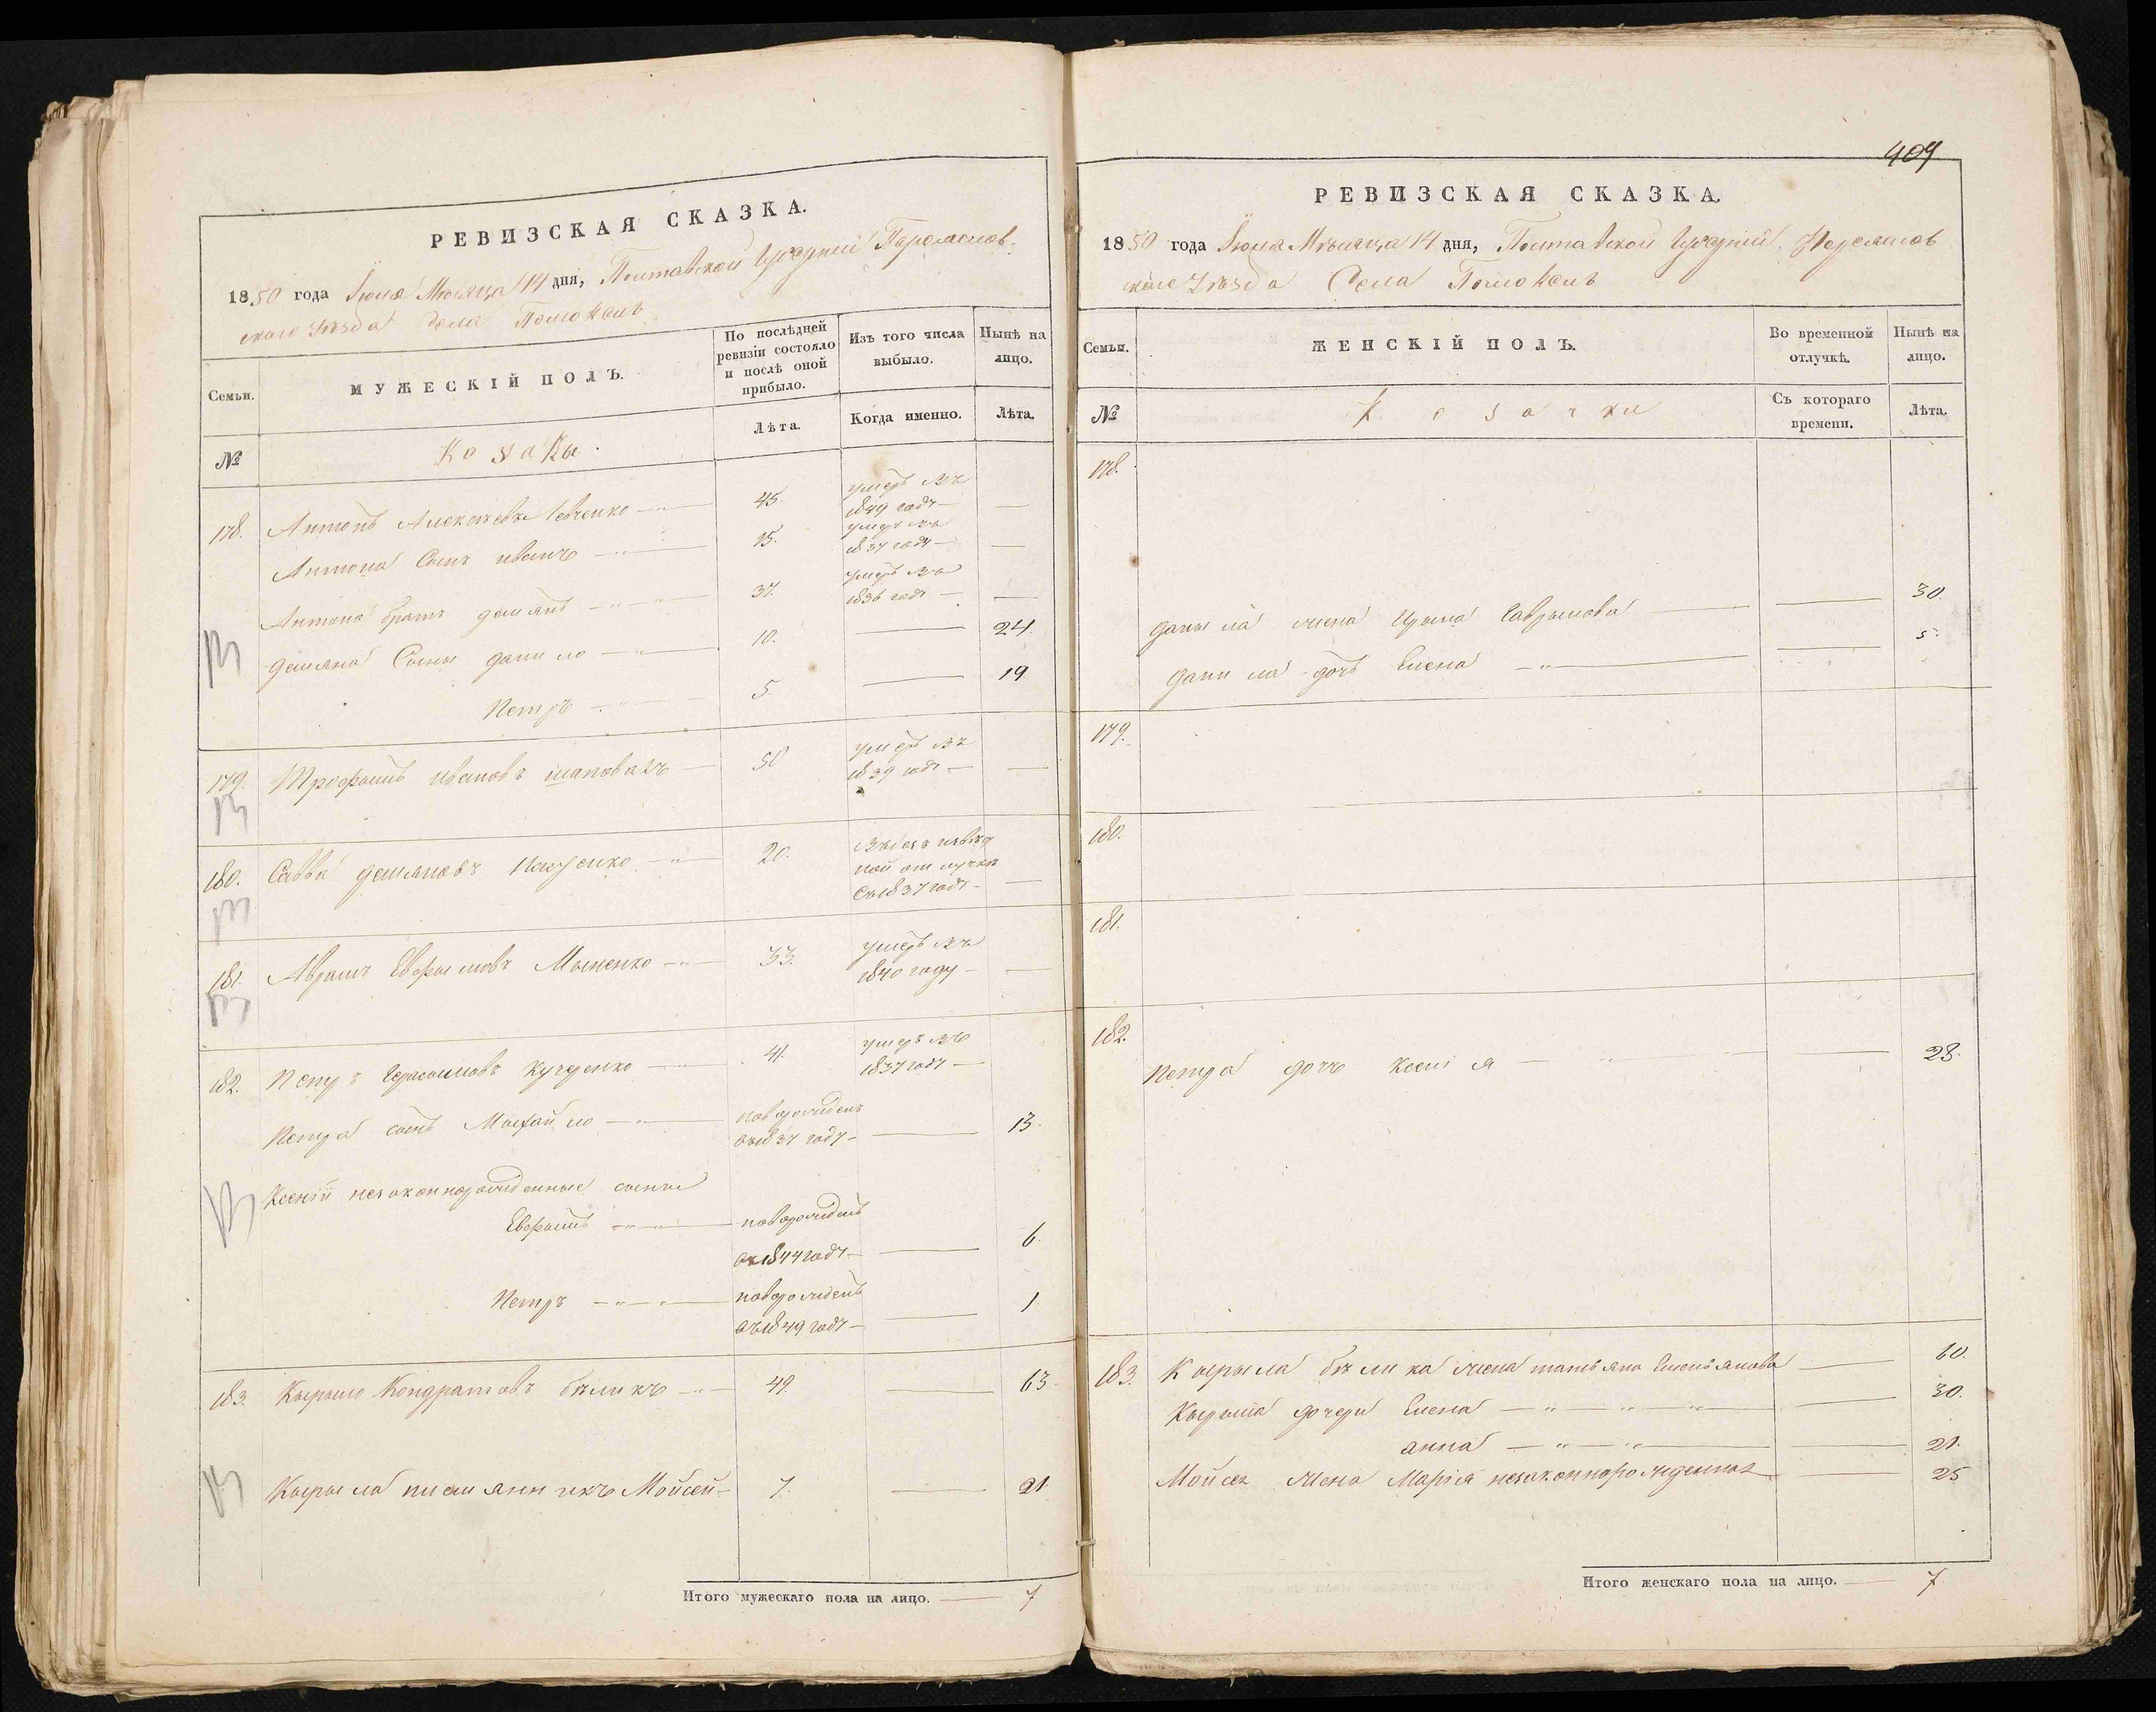 РЕВИЗСКАЯ СКАЗКА.
1850 года Іюля Мѣсяца 14 дня, Полтавской Губерніи Переяслов-
скаго Уѣзда Села Помоклей
Семьи.
МУЖЕСКІЙ ПОЛЪ.
По послѣдней ревизіи состояло и послѣ оной прибыло.
Изъ того числа выбыло.
Нынѣ на лицо.
№
Козаки.
Лѣта.
Когда именно.
Лѣта.
178. Антонъ Алексѣевъ 45. умеръ въ 1849 годѣ —
Антона Сынъ иванъ — 15. умеръ въ 1837 годѣ —
Антона братъ демянъ — 37. умеръ въ 1836 годѣ —
демяна Сыны данило — 10. — 24.
Петръ — 5. — 19
179. Трофимъ ивановъ шаповалъ — 50 умеръ въ 1839 годѣ —
180. Савва демяновъ — 20. въ безъизвѣстной отлучкѣ Съ 1837 годѣ —
181. Аврамъ Евфимовъ Миненко — 33. умеръ въ 1840 году —
182. Петръ Герасимовъ Кучеренко — 41. умеръ въ 1837 годѣ —
Петра сынъ Михайло — новорожденъ въ 1837 годѣ — 13.
Ксеніи незаконнорожденные сыны
Евфимъ — новорожденъ въ 1844 годѣ — 6.
Петръ — новорожденъ въ 1849 годѣ — 1.
183. Кирило Кондратовъ бѣликъ — 49. — 63.
Кирила племянникъ Мойсей — 7. — 21
Итого мужескаго пола на лицо. — 7
409
РЕВИЗСКАЯ СКАЗКА.
1850 года Іюля Мѣсяца 14 дня, Полтавской Губерніи Переяслов
скаго Уѣзда Села Помоклей
Семьи.
ЖЕНСКІЙ ПОЛЪ.
Во временной отлучкѣ.
Нынѣ на лицо.
№
Козачки
Съ котораго времени.
Лѣта.
178.
данила жена Ирина Гаврилова — 30.
данила дочь Елена — 5.
179.
180.
181.
182.
Петра дочь Ксенія — 28.
183. Кирила бѣлика жена татьяна Емельянова — 60.
Кирила дочери Елена — 30.
анна — 21.
Мойсея жена Марія незаконнорожденная — 25
Итого женскаго пола на лицо. — 7